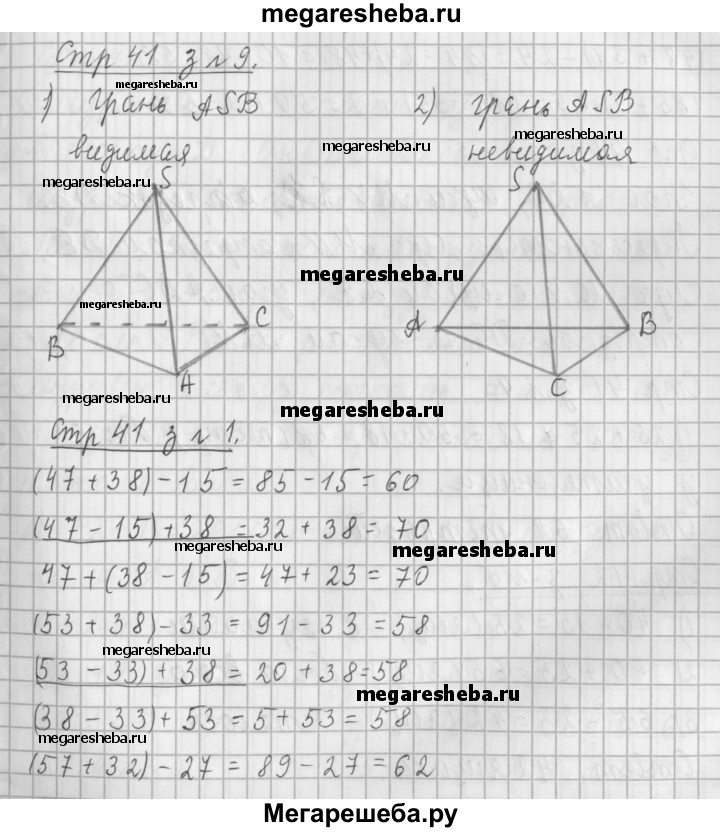 megaresheba.ru
Стр 41 з № 9.
megaresheba.ru
1) Грань ASB 2) грань ASB
megaresheba.ru
видимая megaresheba.ru невидимая
megaresheba.ru S S
megaresheba.ru
megaresheba.ru
B C A B
A C
megaresheba.ru
megaresheba.ru
Стр 41 з № 1.
(47 + 38) - 15 = 85 - 15 = 60
(47 - 15) + 38 = 32 + 38 = 70
megaresheba.ru megaresheba.ru
47 + (38 - 15) = 47 + 23 = 70
(53 + 38) - 33 = 91 - 33 = 58
megaresheba.ru
(53 - 33) + 38 = 20 + 38 = 58
megaresheba.ru
(38 - 33) + 53 = 5 + 53 = 58
megaresheba.ru
(57 + 32) - 27 = 89 - 27 = 62
Мегарешеба.ру